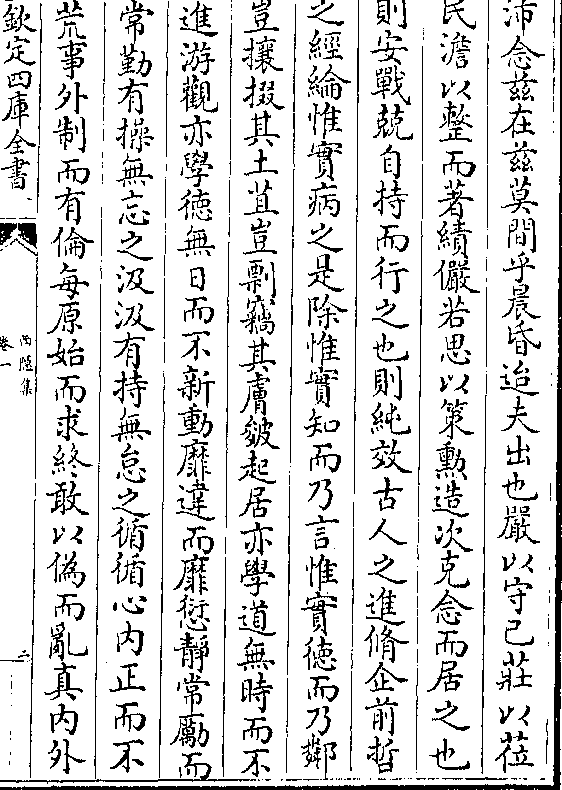 沛念茲在茲莫間乎晨昏迨夫出也嚴以守己莊以莅
民澹以整而著績儼若思以策勲造次克念而居之也
則安戰兢自持而行之也則純效古人之進脩企前哲
之經綸惟實病之是除惟實知而乃言惟實徳而乃鄰
豈攘掇其土苴豈剽竊其膚皴起居亦學道無時而不
進游觀亦學徳無日而不新動靡違而靡愆靜常勵而
常勤有操無忘之汲汲有持無怠之循循心内正而不
荒事外制而有倫每原始而求終敢以偽而亂真内外
欽定四庫全書
西隱集
卷一
二